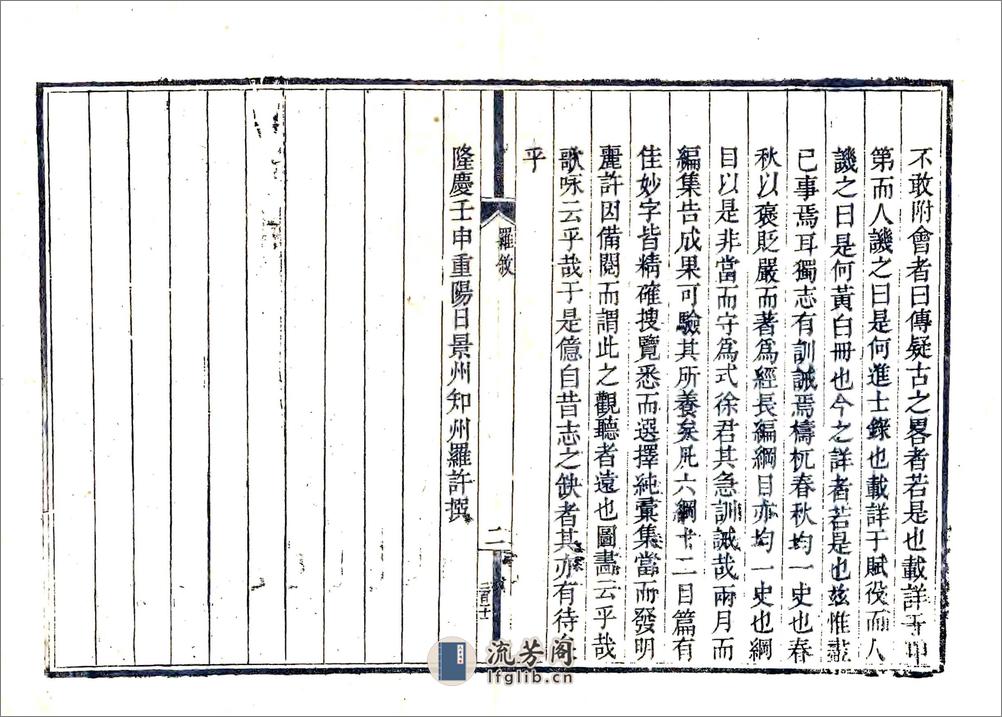 不敢附會者曰傳疑古之畧者若是也載詳于甲
第而人譏之曰是何進士錄也載詳于賦役而人
譏之曰是何黃白冊也今之詳者若是也兹惟
已事焉耳獨志有訓誡焉檮杌春秋均一史也春
秋以褒貶嚴而著爲經長編綱目亦均一史也綱
目以是非當而守爲式徐君其急訓誡哉兩月而
編集告成果可驗其所養矣凡六綱十二目篇有
佳妙字皆精確搜覽悉而選擇純彙集當而發明
麗許因備閱而謂此之觀聽者遠也圖畵云乎哉
歌咏云乎哉于是億自昔志之缺者其亦有待
乎
羅敘
二
隆慶壬申重陽日景州知州羅許撰
流芳阁
lfglib.cn